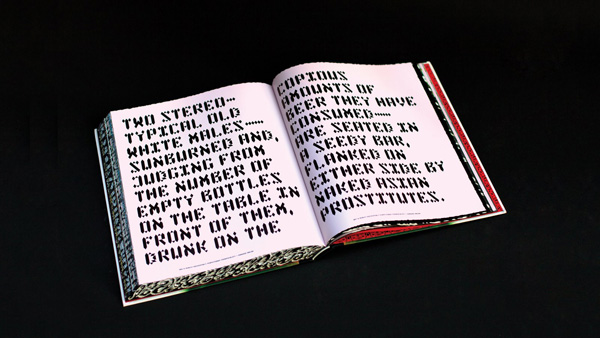 TWO STEREO...
TYPICAL OLD
WHITE MALES......
SUNBURNED AND,
JUDGING FROM
THE NUMBER OF
EMPTY BOTTLES
ON THE TABLE IN
FRONT OF THEM,
DRUNK ON THE
COPIOUS
AMOUNTS OF
BEER THEY HAVE
CONSUMED......
ARE SEATED IN
A SEEDY BAR,
FLANKED ON
EITHER SIDE BY
NAKED ASIAN
PROSTITUTES.